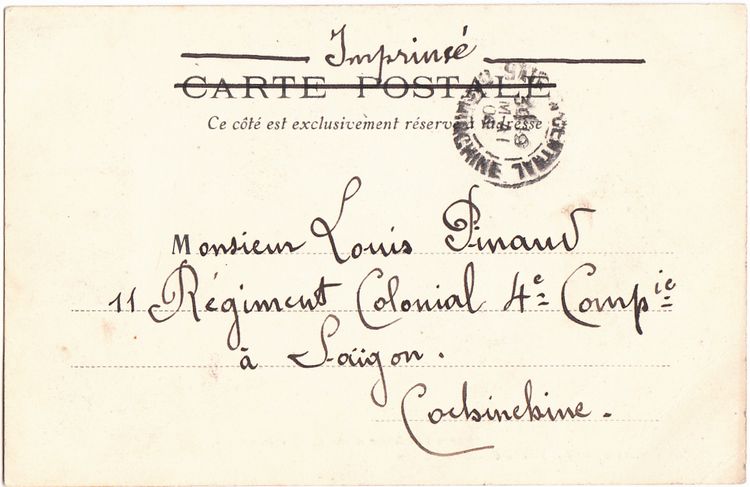 Imprimé
CARTE POSTALE
Ce côté est exclusivement réservé à l'adresse
CENTRAL
COCHINCHINE
Monsieur Louis Pinaud
11 Régiment Colonial 4e Compie
à Saïgon.
Cochinchine.